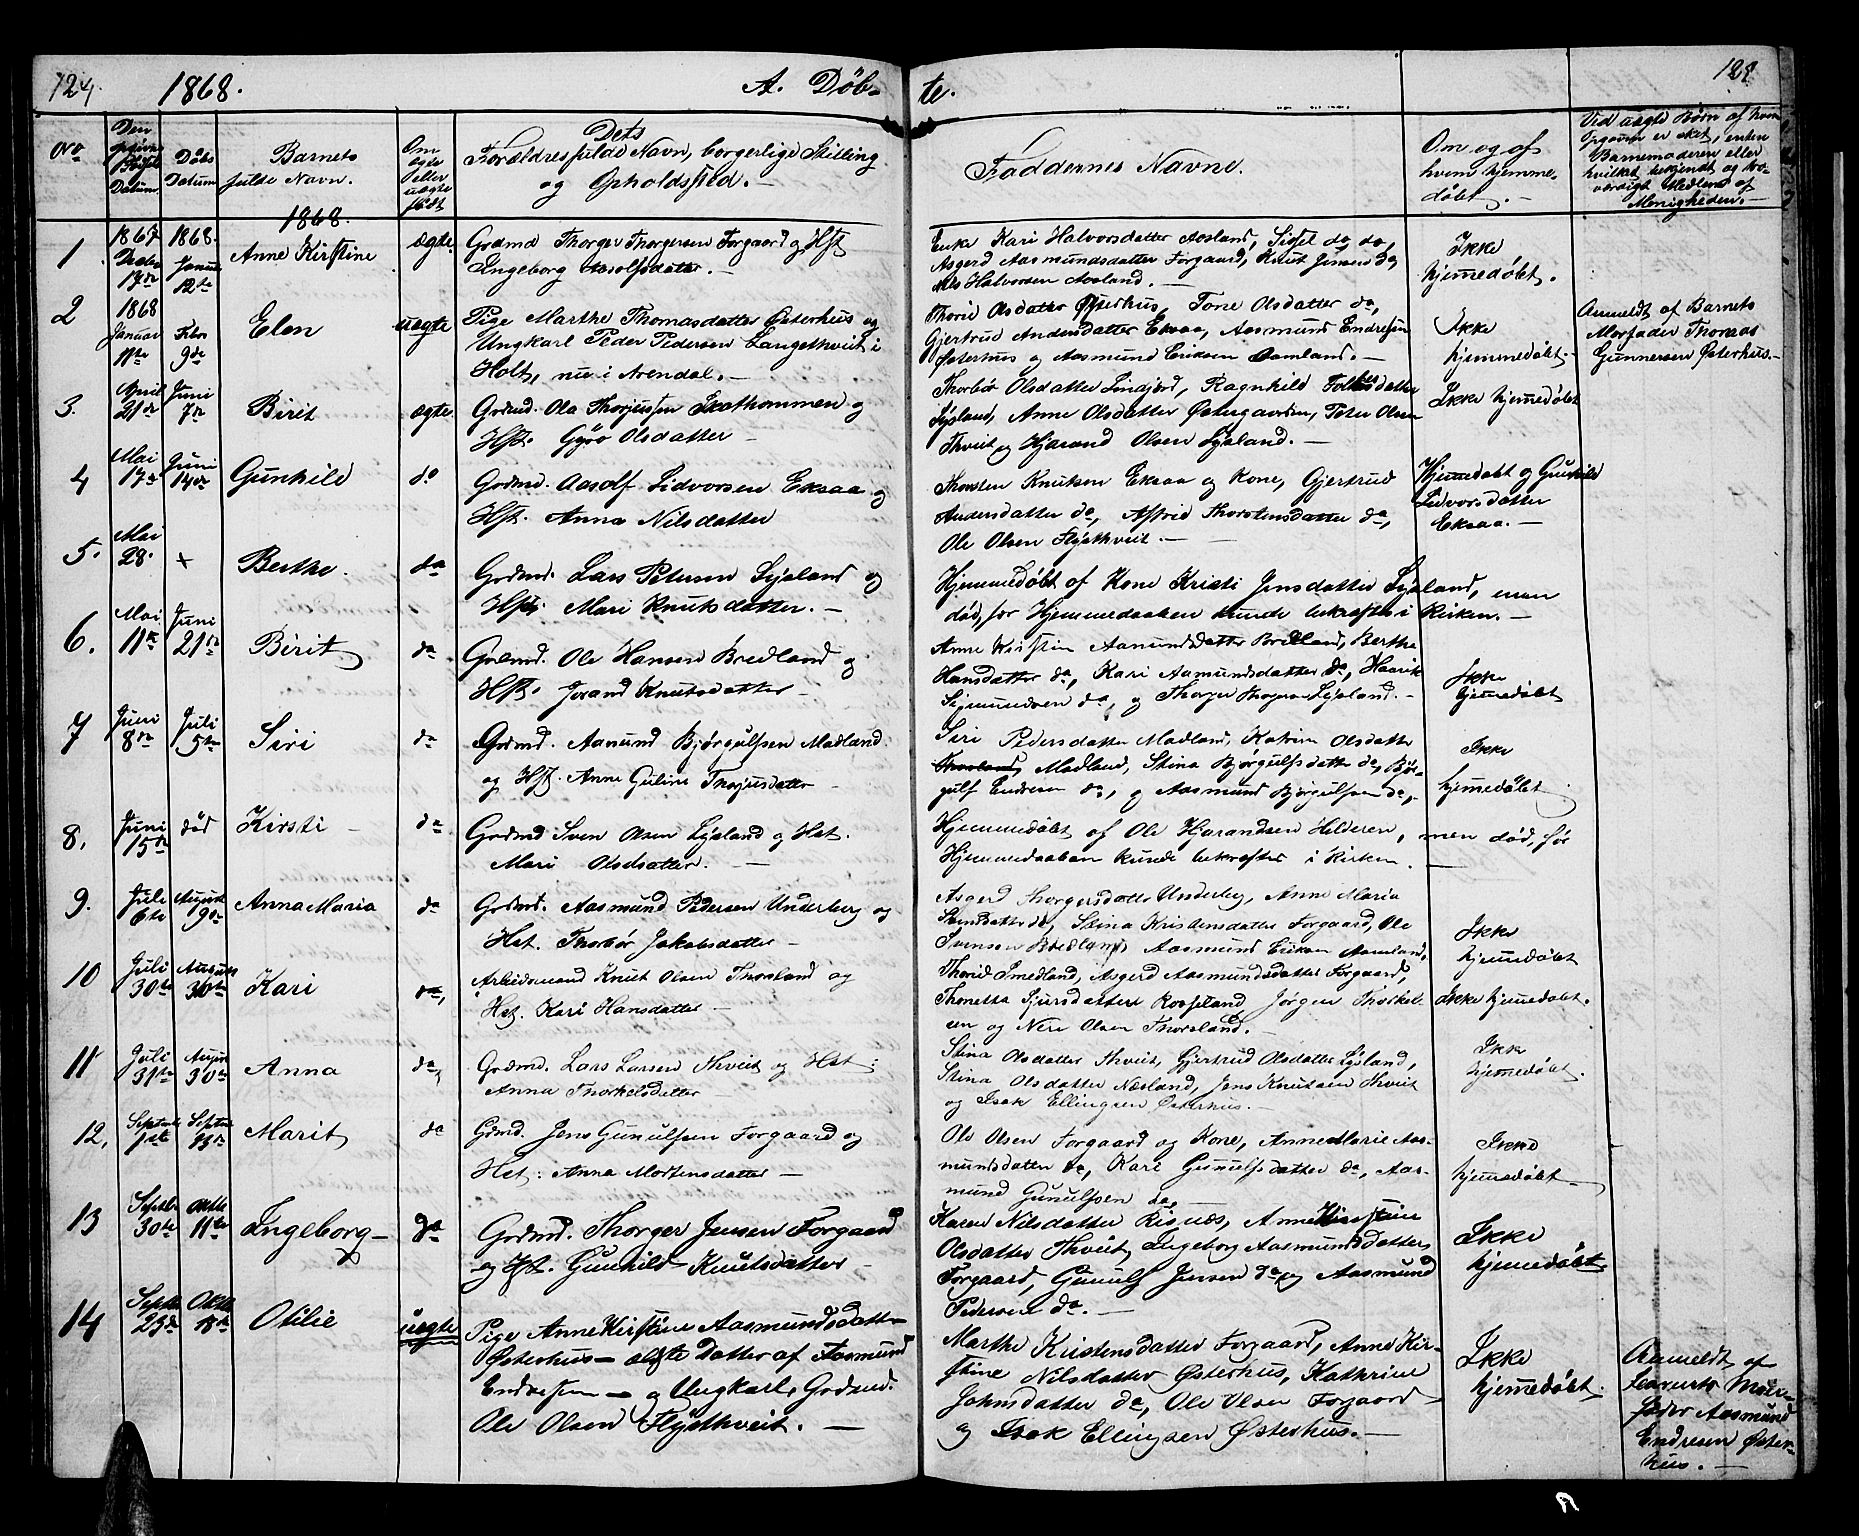 124. 1868. A. Döb- te. 125
No
Den
Døbs
Datum
Barnets
fulde Navn.
Om
ægte
eller
uægte
født
Dets
Forældres fulde Navn, borgerlige Stilling
og Opholdssted. —
Faddernes Navne.
Om og af
hvem hjemme-
döbt. —
Ved uægte Børn af hvem
Opgaven er sket, enten
Barnemoderen eller
hvilket bekjendt og tro-
værdigt Medlem af
Menigheden. —
1868.
1 1867 Decbr 17de 1868. Januar 12te Anne Kirstine ægte. Grdmd Thorger Thorgersen Forgaard og Hst
Ingeborg Aasolfsdatter. —
Enke Kari Halvorsdatter Aasland, Sissel do do,
Asgerd Aasmundsdatter Forgaard, Knut Jensen do,
Nils Halvorsen Aasland. —
Ikke
hjemmedøbt.
2 1868 Januar 11te Febr 9de Elen uægte Pige Marthe Thomasdatter Østerhus og
Ungkarl Peder Pedersen Langethveit i
Holt, nu i Arendal. —
Thorid Olsdatter Østerhus, Tone Olsdatter do,
Gjertrud Andersdatter Eksaa, Aasmund Endresen
Østerhus og Aasmund Eriksen Aamland. —
Ikke
hjemmedøbt. —
Anmeldt af Barnets
Morfader Thomas
Gunnersen Østerhus. —
3. April 21de Juni 7de Birit ægte. Grdmd. Ola Thorjussen Skathommen og
Hst. Gyro Olsdatter —
Thorbør Olsdatter Lindjord, Ragnhild Folkesdatter
Lyseland, Anne Olsdatter Østergaarden, Peter Olsen
Thveit og Hjarand Olsen Lyseland. —
Ikke hjemedøbt
4 Mai 17de Juni 14de Gunhild do Grdmd. Aasolf Sidvorsen Eksaa og
Hst. Anna Nilsdatter
Thorsten Knutsen Eksaa og Kone, Gjertrud
Andersdatter do, Astrid Thorstensdatter do,
Ole Olsen Flysthveit. —
Hjemedøbt og Gunhild
Sidvorsdatter
Eksaa. —
5. Mai 28. + Berthe. do Grdmd. Lars Petersen Lyseland og
Hst. Mari Knutsdatter. —
Hjemmedøbt af Kone Kristi Jensdatter Lyseland, men
død, før Hjemmedaaben kunde bekræftes i Kirken. —
6. Mai 11te Juni 21de Birit do Grdmd. Ole Hansen Bredland og
Hst. Jorand Knutsdatter —
Anne Kirstin Aanundsdatter Bredland, Berthe
Hansdatter do, Kari Aamundsdatter do, Haavik
Sigmundsen do, og Thorger Lyseland. —
Ikke
hjemedøbt
7 Juni 8de Juli 5te Siri do Grdmd. Aanund Bjørgulfsen Madland.
og Hst. Anne Guline Thorjusdatter —
Siri Pedersdatter Madland, Katrine Olsdatter
Madland, Stina Bjørgulfsdatter do, Bør-
gulf Endresen do, og Aasmund Bjørgulfsen do, —
Ikke
hjemedøbt
8. Juni 15de død Kirsti — do Grdmd. Sven Olsen Lyseland og Hst.
Mari Olsdatter. —
Hjemmedøbt af Ole Hjarandsen Helderen, men død, før
Hjemmedaaben kunde bekræftes i Kirken. —
9. Juli 6te August 9de Anna Maria do Grdmd. Aasmund Pedersen Underberg og
Hst. Thorbør Jakobsdatter —
Asgerd Thorgersdatter Underberg, Anne Maria
do, Stina Kristensdatter Forgaard, Ole
Svensen Bredland, Aasmund Eriksen Aamland.
Ikke
hjemedøbt
10 Juli 30te August 30te Kari do, Arbeidsmand Knut Olsen Thorsland og
Hst. Kari Hansdatter —
Thorid Smedland, Asgerd Aasmundsdatter Forgaard,
Thonetta Sjursdatter Rosseland Jørgen Thorkel-
sen og Neri Olsen Thorsland. —
Ikke hjemedøbt.
11 Juli 31te August 30te Anna do, Grdmd. Lars Larsen Thveit og Hst:
Anna Thorkelsdatter —
Stina Olsdatter Thveit, Gjertrud Olsdatter Lyseland,
Stina Olsdatter Næsland, Jens Knutsen Thveit
og Isak Ellingsen Østerhus. —
Ikke
hjemedøbt.
12, Septemb 1ste Septemb 13de Marit do Grdmd. Jens Gunulfsen Forgaard og
Hst: Anna Mortensdatter —
Ole Olsen Forgaard og Kone, Anne Marie Aas-
mundsdatter do, Kari Gunulfsdatter do, Aas-
mund Gunulfsen do, —
Ikke
hjemedøbt —
13 Septbr 30te Oktbr 11te Ingeborg — do Grdmd. Thorger Jensen Forgaard
og Hst. Gunhild Knutsdatter —
Karen Nilsdatter Risnæs, Anne Kirstine
Olsdatter Thveit, Ingeborg Aasmundsdatter
Forgaard, Gunulf Jensen do og Aasmund
Pedersen do. —
Ikke
hjemedøbt
14 Septbr 25de Oktbr 18de Otilie uægte Pige Anne Kirstine Aasmundsdatter
Østerhus — ældste Datter af Aasmund
Endresen — og Ungkarl, Grdmd.
Ole Olsen Flysthveit. —
Marthe Kristensdatter Forgaard, Anne Kir-
stine Nilsdatter Østerhus, Kathrine
Johnsdatter do, Ole Olsen Forgaard
og Isak Ellingsen Østerhus. —
Ikke
hjemedøbt.
Anmeldt af
Barnets Mor-
fader Aasmund
Endresen Øster-
hus. —